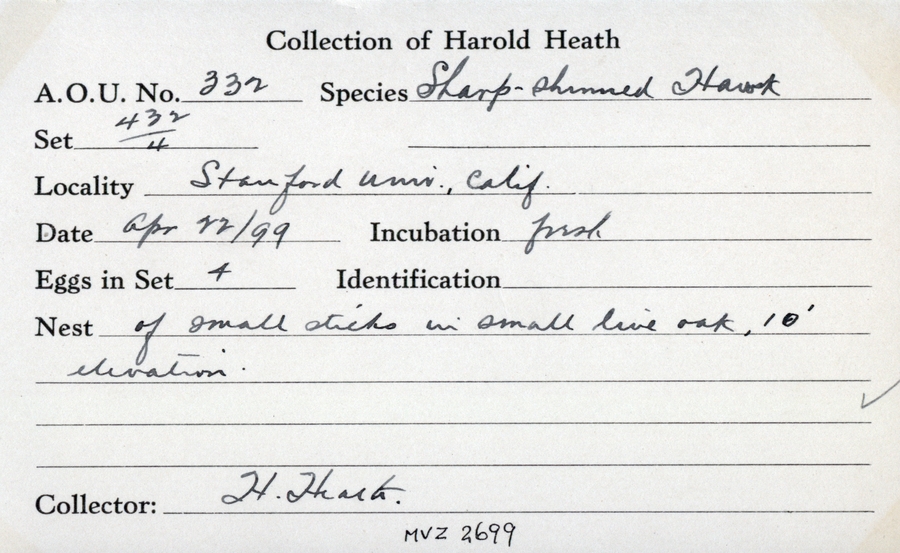 Collection of Harold Heath
A.O.U. No. 332 Species Sharp-shinned Hawk
Set 432/4
Locality Stanford Univ., Calif.
Date Apr 22/99 Incubation fresh
Eggs in Set 4 Identification
Nest of small sticks in small live oak, 10'
elevation.
Collector: H. Heath.
MVZ 2699